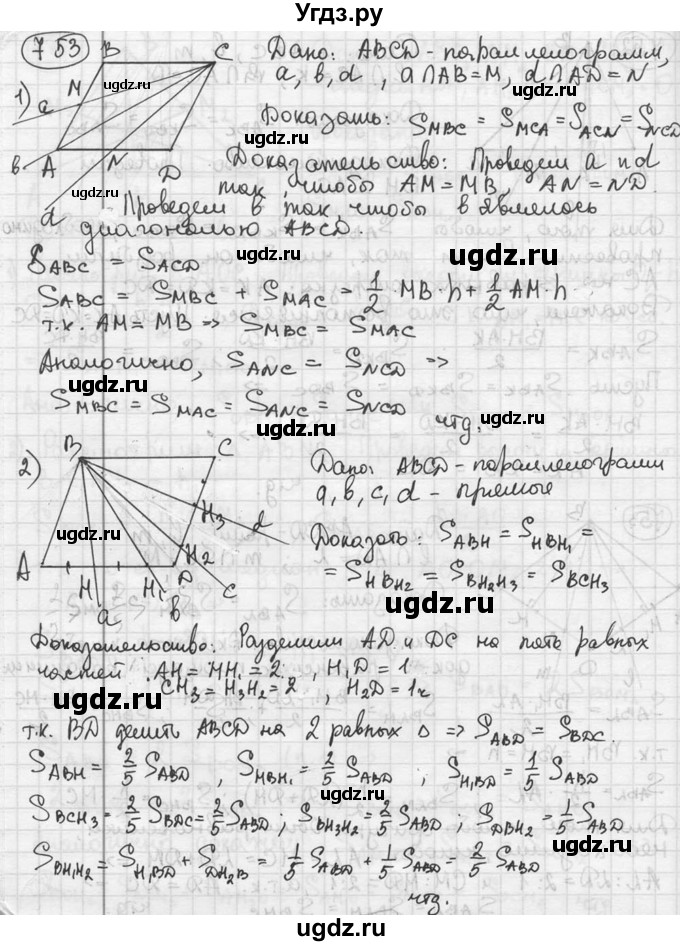 Угдз.ру
753
1)
B
C
M
a
b
A
N
D
d
ugdz.ru
ugdz.ru
Дано: ABCD - параллелограмм,
a, b, d, a∩AB=M, d∩AD=N
ugdz.ru
Доказать: S_MBC = S_MCA = S_ACN = S_NCD
Доказательство: Проведем a и d
так, чтобы AM=MB, AN=ND.
Проведем b так, чтобы b являлось
диагональю ABCD.
S_ABC = S_ACD
ugdz.ru
S_ABC = S_MBC + S_MAC = 1/2 · MB · h + 1/2 AM · h
т.к. AM=MB => S_MBC = S_MAC
ugdz.ru
Аналогично, S_ANC = S_NCD =>
S_MBC = S_MAC = S_ANC = S_NCD
чтд.
ugdz.ru
ugdz.ru
2)
B
C
H3
d
H2
A
H
H1
D
C
a
b
ugdz.ru
ugdz.ru
Дано: ABCD - параллелограмм
a, b, c, d - прямые
Доказать: S_ABH = S_HBH1 =
= S_H1BH2 = S_BH2H3 = S_BCH3
ugdz.ru
ugdz.ru
Доказательство: Разделим AD и DC на пять равных
частей. AH = HH1 = 2, H1D = 1
CH3 = H3H2 = 2, H2D = 1
ugdz.ru
т.к. BD делит ABCD на 2 равных Δ => S_ABD = S_BDC.
S_ABH = 2/5 S_ABD, S_HBH1 = 2/5 S_ABD; S_H1BD = 1/5 S_ABD
ugdz.ru
ugdz.ru
S_BCH3 = 2/5 S_BDC = 2/5 S_ABD; S_BH3H2 = 2/5 S_ABD; S_DBH2 = 1/5 S_ABD
ugdz.ru
S_BH1H2 = S_H1BD + S_DH2B = 1/5 S_ABD + 1/5 S_ABD = 2/5 S_ABD
чтд.
ugdz.ru
ugdz.ru